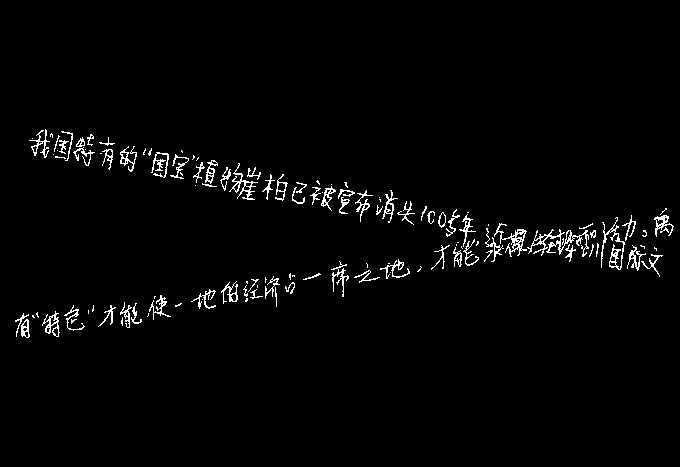 我国特有的“国宝”植物崖柏已被宣布消失100多年
有“特色”才能使一地的经济占一席之地，才能